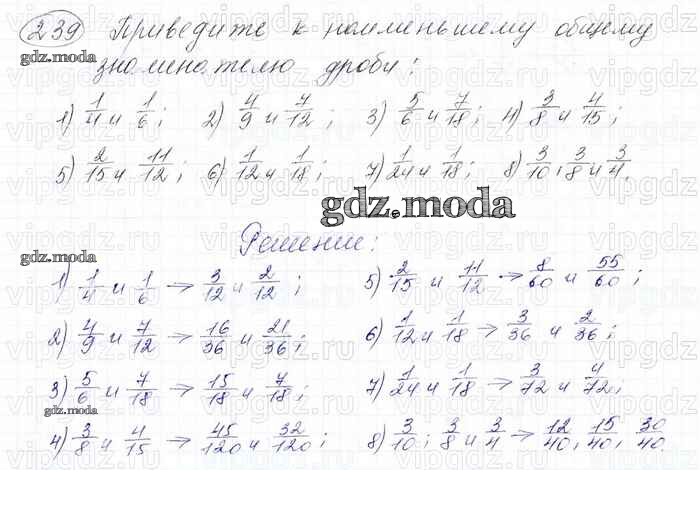 239 Приведите к наименьшему общему
gdz.moda
знаменателю дроби:
1) 1/4 и 1/6; 2) 4/9 и 7/12; 3) 5/6 и 7/18; 4) 3/8 и 4/15;
5) 2/15 и 11/12; 6) 1/12 и 1/18; 7) 1/24 и 1/18; 8) 3/10, 3/8 и 3/4.
gdz.moda
Решение:
gdz.moda
1) 1/4 и 1/6 → 3/12 и 2/12;
2) 4/9 и 7/12 → 16/36 и 21/36;
3) 5/6 и 7/18 → 15/18 и 7/18;
gdz.moda
4) 3/8 и 4/15 → 45/120 и 32/120;
5) 2/15 и 11/12 → 8/60 и 55/60;
6) 1/12 и 1/18 → 3/36 и 2/36;
7) 1/24 и 1/18 → 3/72 и 4/72;
8) 3/10; 3/8 и 3/4 → 12/40, 15/40, 30/40.
vipgdz.ru